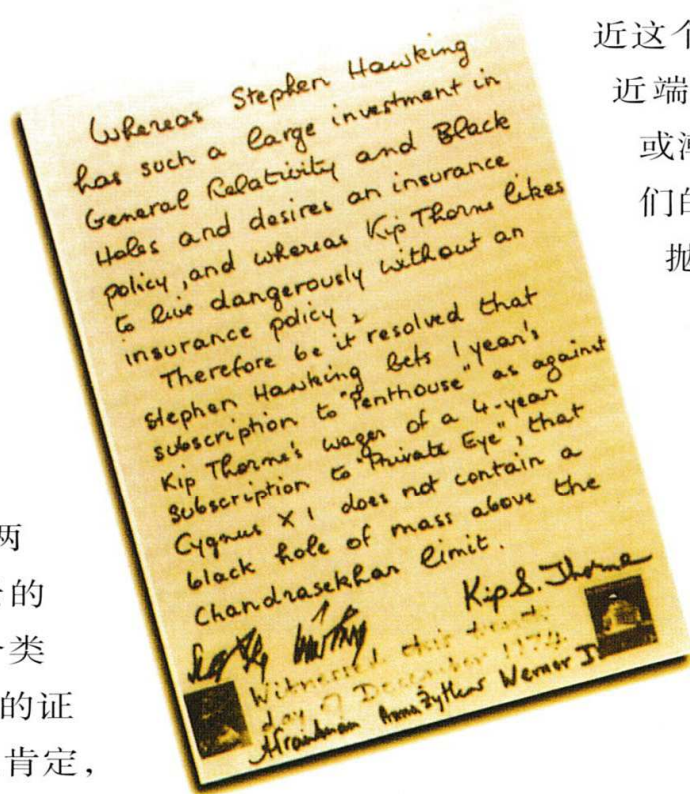 近这个
近端
或
们的
抛
Whereas Stephen Hawking
has such a large investment in
General Relativity and Black
Holes and desires an insurance
policy, and whereas Kip Thorne likes
to live dangerously without an
insurance policy,
Therefore be it resolved that
Stephen Hawking bets 1 year's
subscription to "Penthouse" as against
Kip Thorne's wager of a 4-year
subscription to "Private Eye", that
Cygnus X 1 does not contain a
black hole of mass above the
Chandrasekhar limit.
Kip S. Thorne
Witnessed this
day of December 1974
Anna Żytkow Werner
两
的
类
的证
肯定，